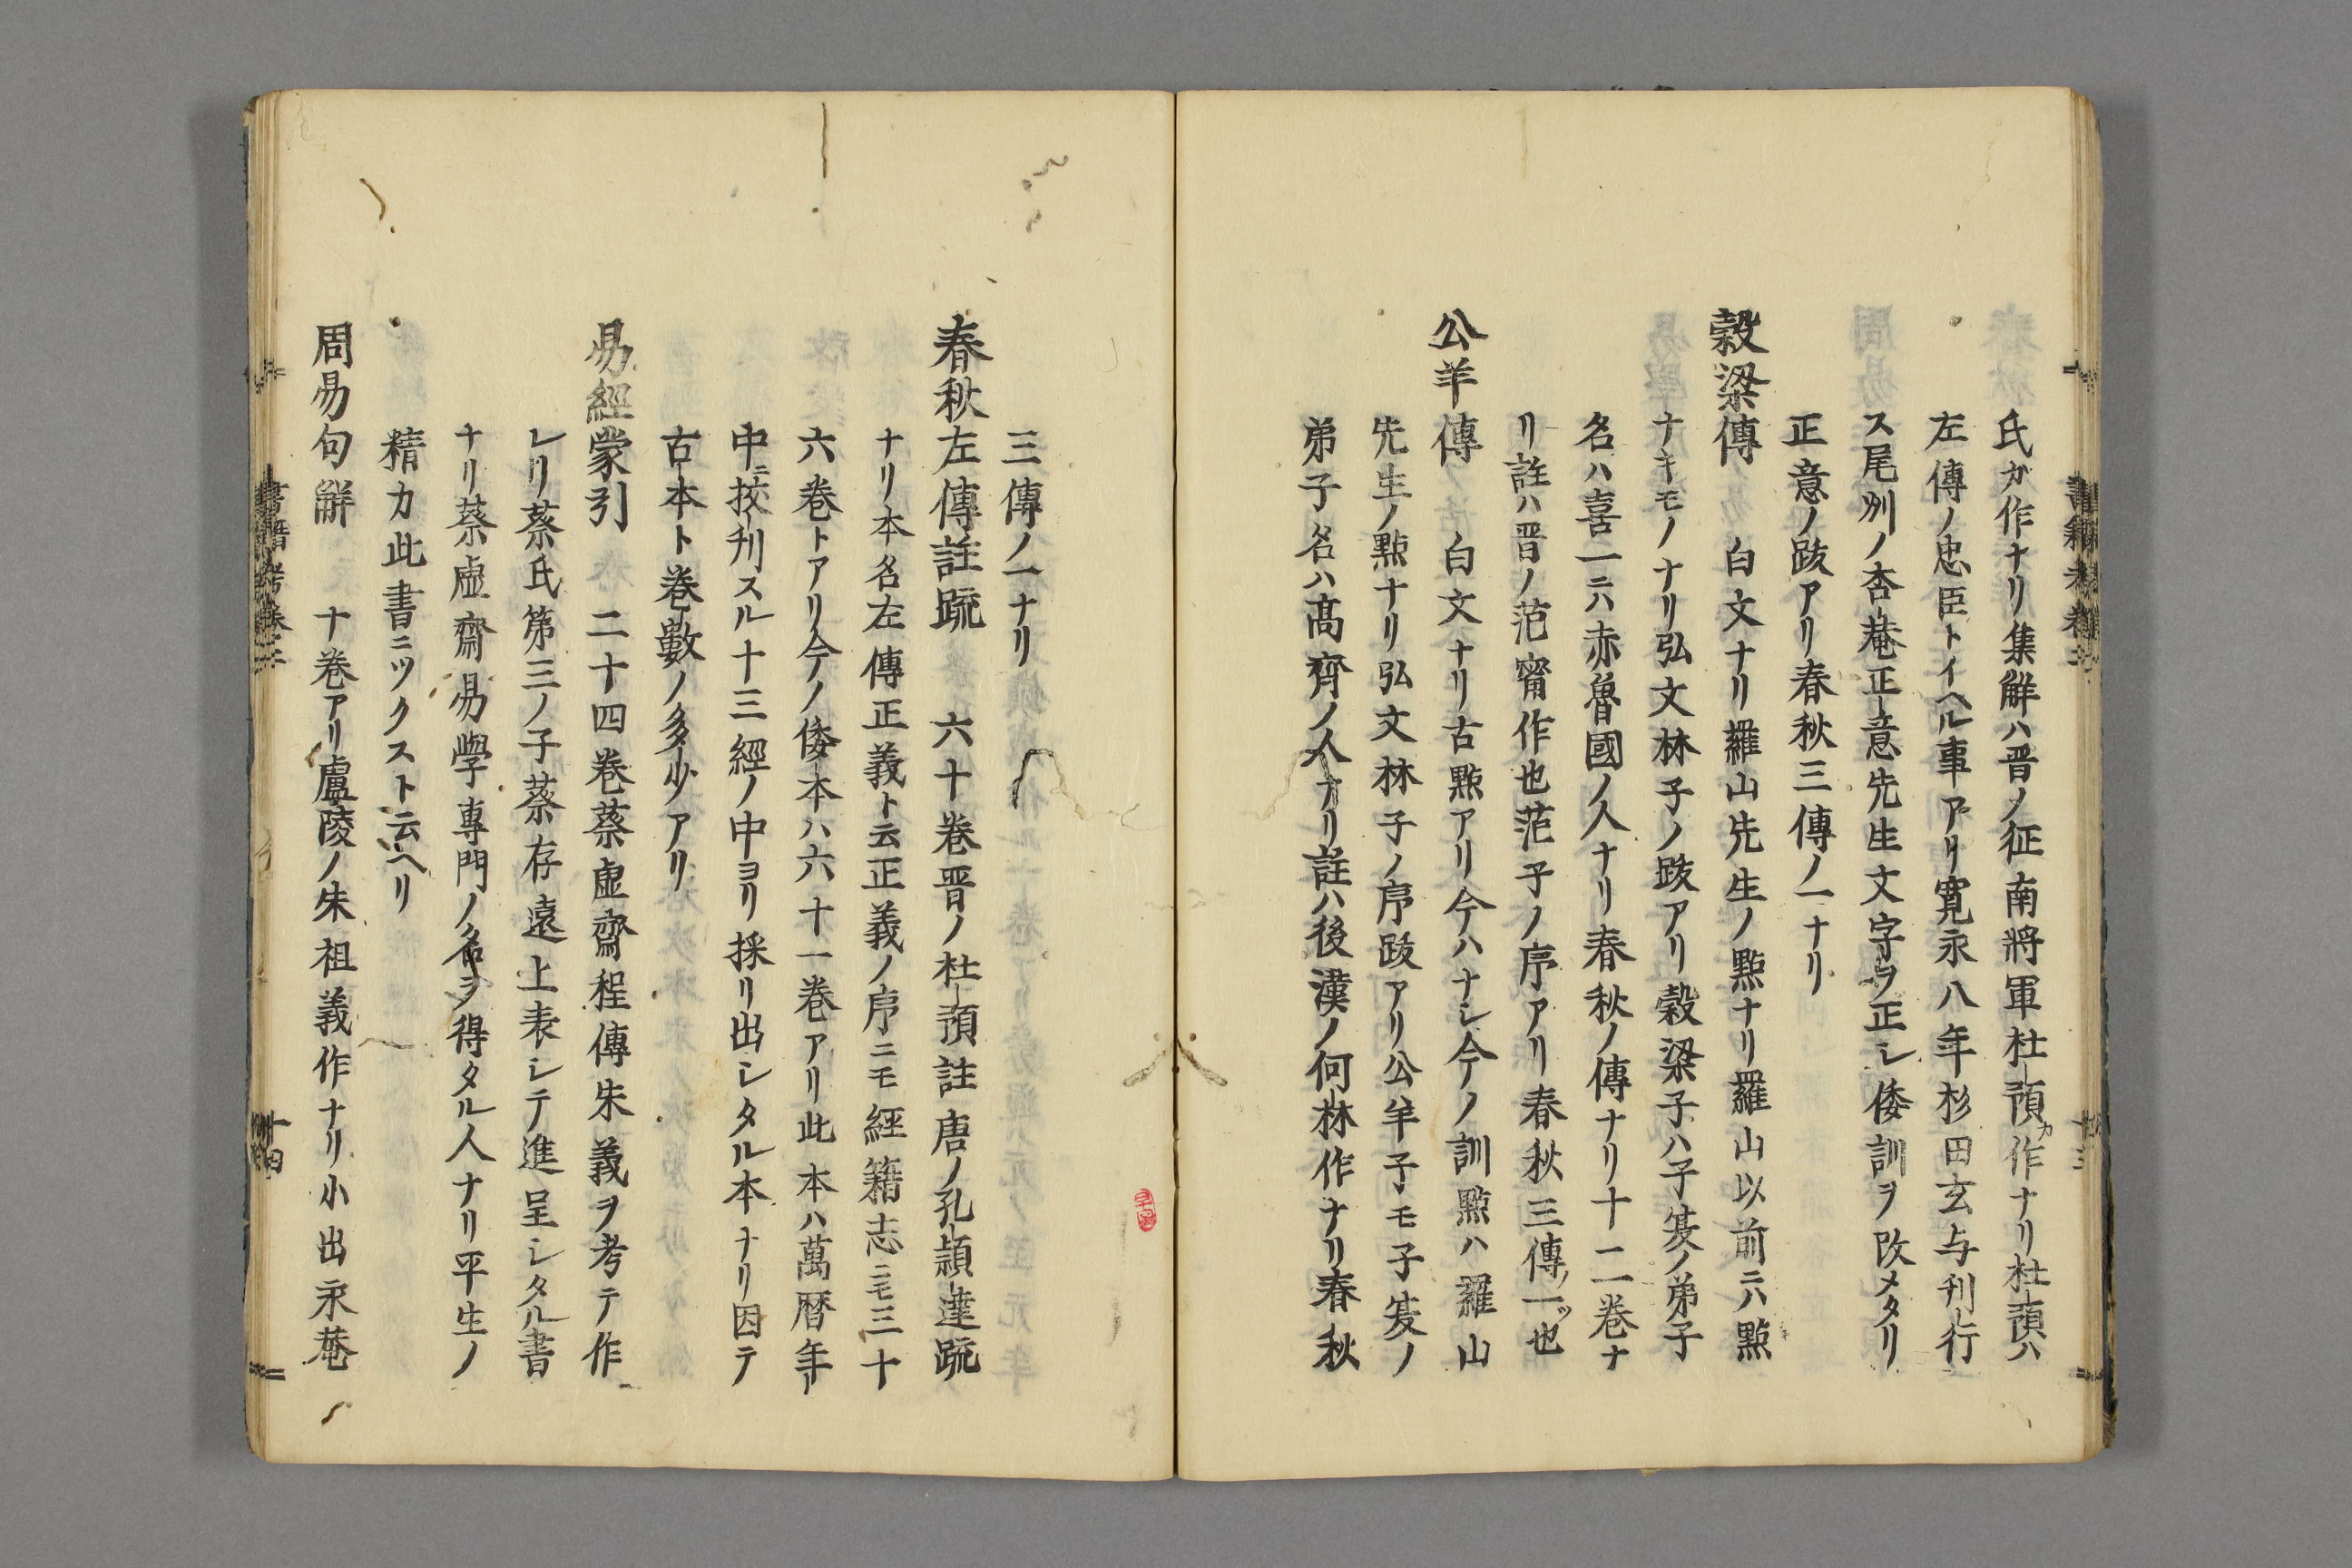 氏ガ作ナリ集觧ハ晋ノ征南將軍杜預カ作ナリ杜預ハ
左傳ノ忠臣トイヘル事アリ寛永八年杉田玄与刊行
ス尾刕ノ杏菴正意先生文字ヲ正シ倭訓ヲ改メタリ
正意ノ跋アリ春秋三傳ノ一ナリ
穀梁傳 白文ナリ羅山先生ノ㸃ナリ羅山以前ニハ㸃
ナキモノナリ弘文林子ノ跋アリ穀梁子ハ子夏ノ弟子
名ハ喜一ニハ赤魯國ノ人ナリ春秋ノ傳ナリ十二巻ナ
リ註ハ晋ノ范甯作也范子ノ序アリ春秋三傳ノ一ツ也
公羊傳 白文ナリ古㸃アリ今ハナシ今ノ訓㸃ハ羅山
先生ノ㸃ナリ弘文林子ノ序跋アリ公羊子モ子夏ノ
弟子名ハ髙齊ノ人ナリ註ハ後漢ノ何林作ナリ春秋
三傳ノ一ナリ
春秋左傳註疏 六十巻晋ノ杜預註唐ノ孔頴達疏
ナリ本名左傳正義ト云正義ノ序ニモ經籍志ニモ三十
六巻トアリ今ノ倭本ハ六十一巻アリ此本ハ萬暦年ノ
中ニ挍刋スル十三經ノ中ヨリ採リ出シタル本ナリ因テ
古本ト巻數ノ多少アリ
易經蒙引 二十四巻蔡虚齋程傳朱義ヲ考テ作
レリ蔡氏第三ノ子蔡存遠上表シテ進呈シタル書
ナリ蔡虚齋易學專門ノ名ヲ得タル人ナリ平生ノ
精力此書ニツクスト云ヘリ
周易句觧 十巻アリ盧陵ノ朱祖義作ナリ小出永菴
書籍考巻二
十四